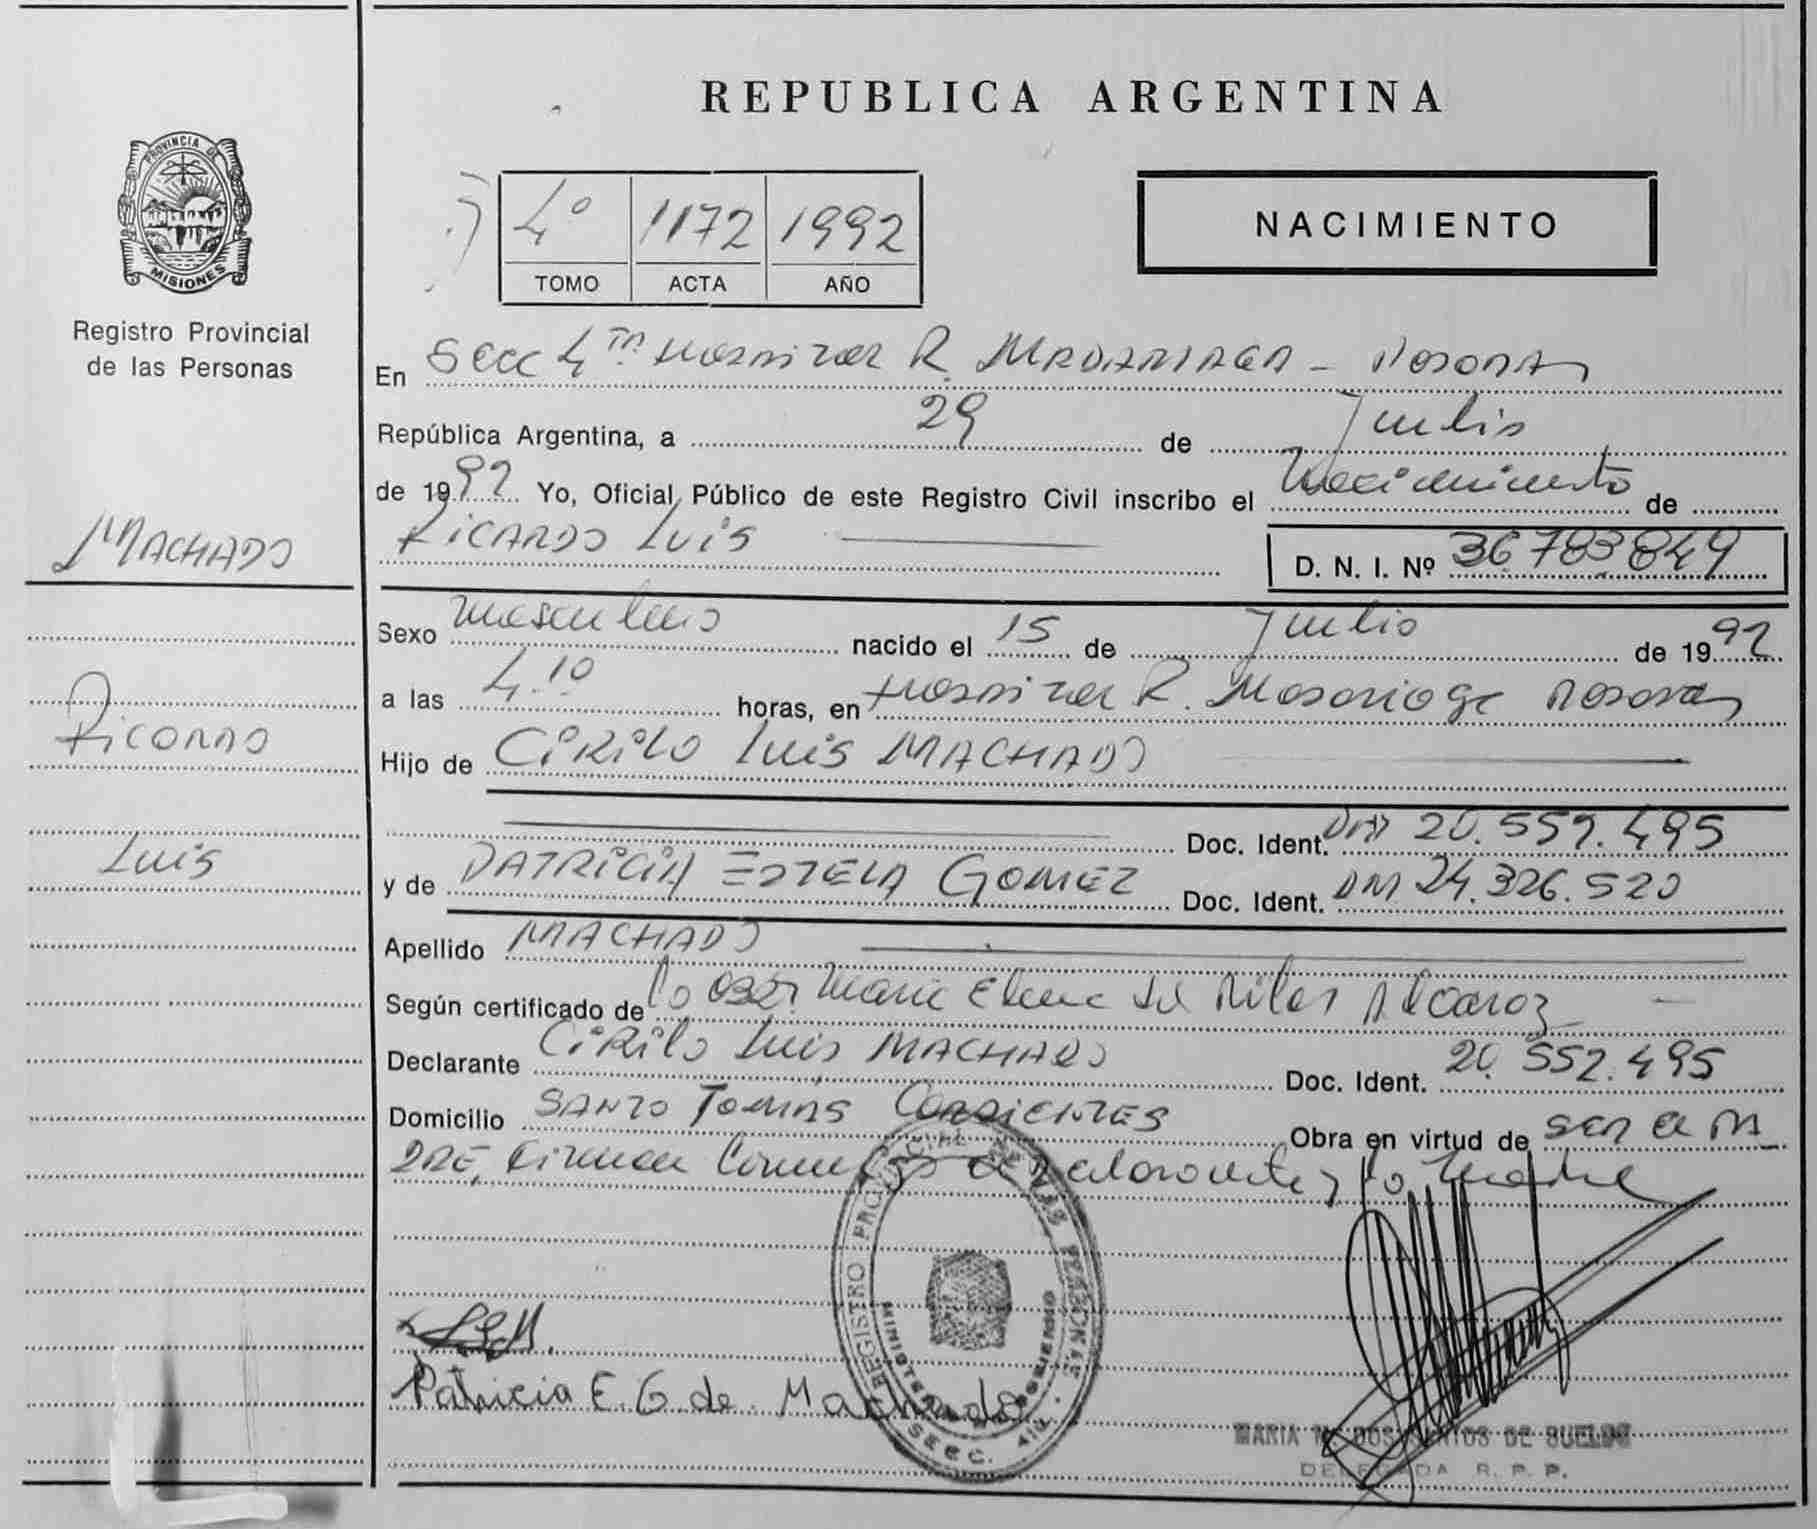 REPUBLICA ARGENTINA
PROVINCIA DE
MISIONES
Registro Provincial
de las Personas
4º 1172 1992
TOMO ACTA AÑO
NACIMIENTO
En Secc 4ta Hospital R. MADARIAGA - Posadas
República Argentina, a 29 de Julio
de 1992 Yo, Oficial Público de este Registro Civil inscribo el Nacimiento de
RICARDO LUIS
D. N. I. Nº 36.783.849
MACHADO
Ricardo
Luis
Sexo masculino nacido el 15 de Julio de 1992
a las 4.10 horas, en Hospital R. Madariaga Posadas
Hijo de CIRILO LUIS MACHADO
Doc. Ident. DNI 20.552.495
y de PATRICIA ESTELA GOMEZ Doc. Ident. DNI 24.326.520
Apellido MACHADO
Según certificado de la Obst. Maria Elena del Pilar Alcaraz
Declarante CIRILO LUIS MACHADO Doc. Ident. 20.552.495
Domicilio SANTO TOMÁS CORRIENTES Obra en virtud de ser el PA
DRE, Firman Conmigo el declarante y la madre
Patricia E. G. de Machado
REGISTRO PROVINCIAL DE LAS PERSONAS
MINISTERIO DE GOBIERNO
SECC. 4ta.
MARIA M. DOS SANTOS DE BUELDO
DELEGADA R. P. P.